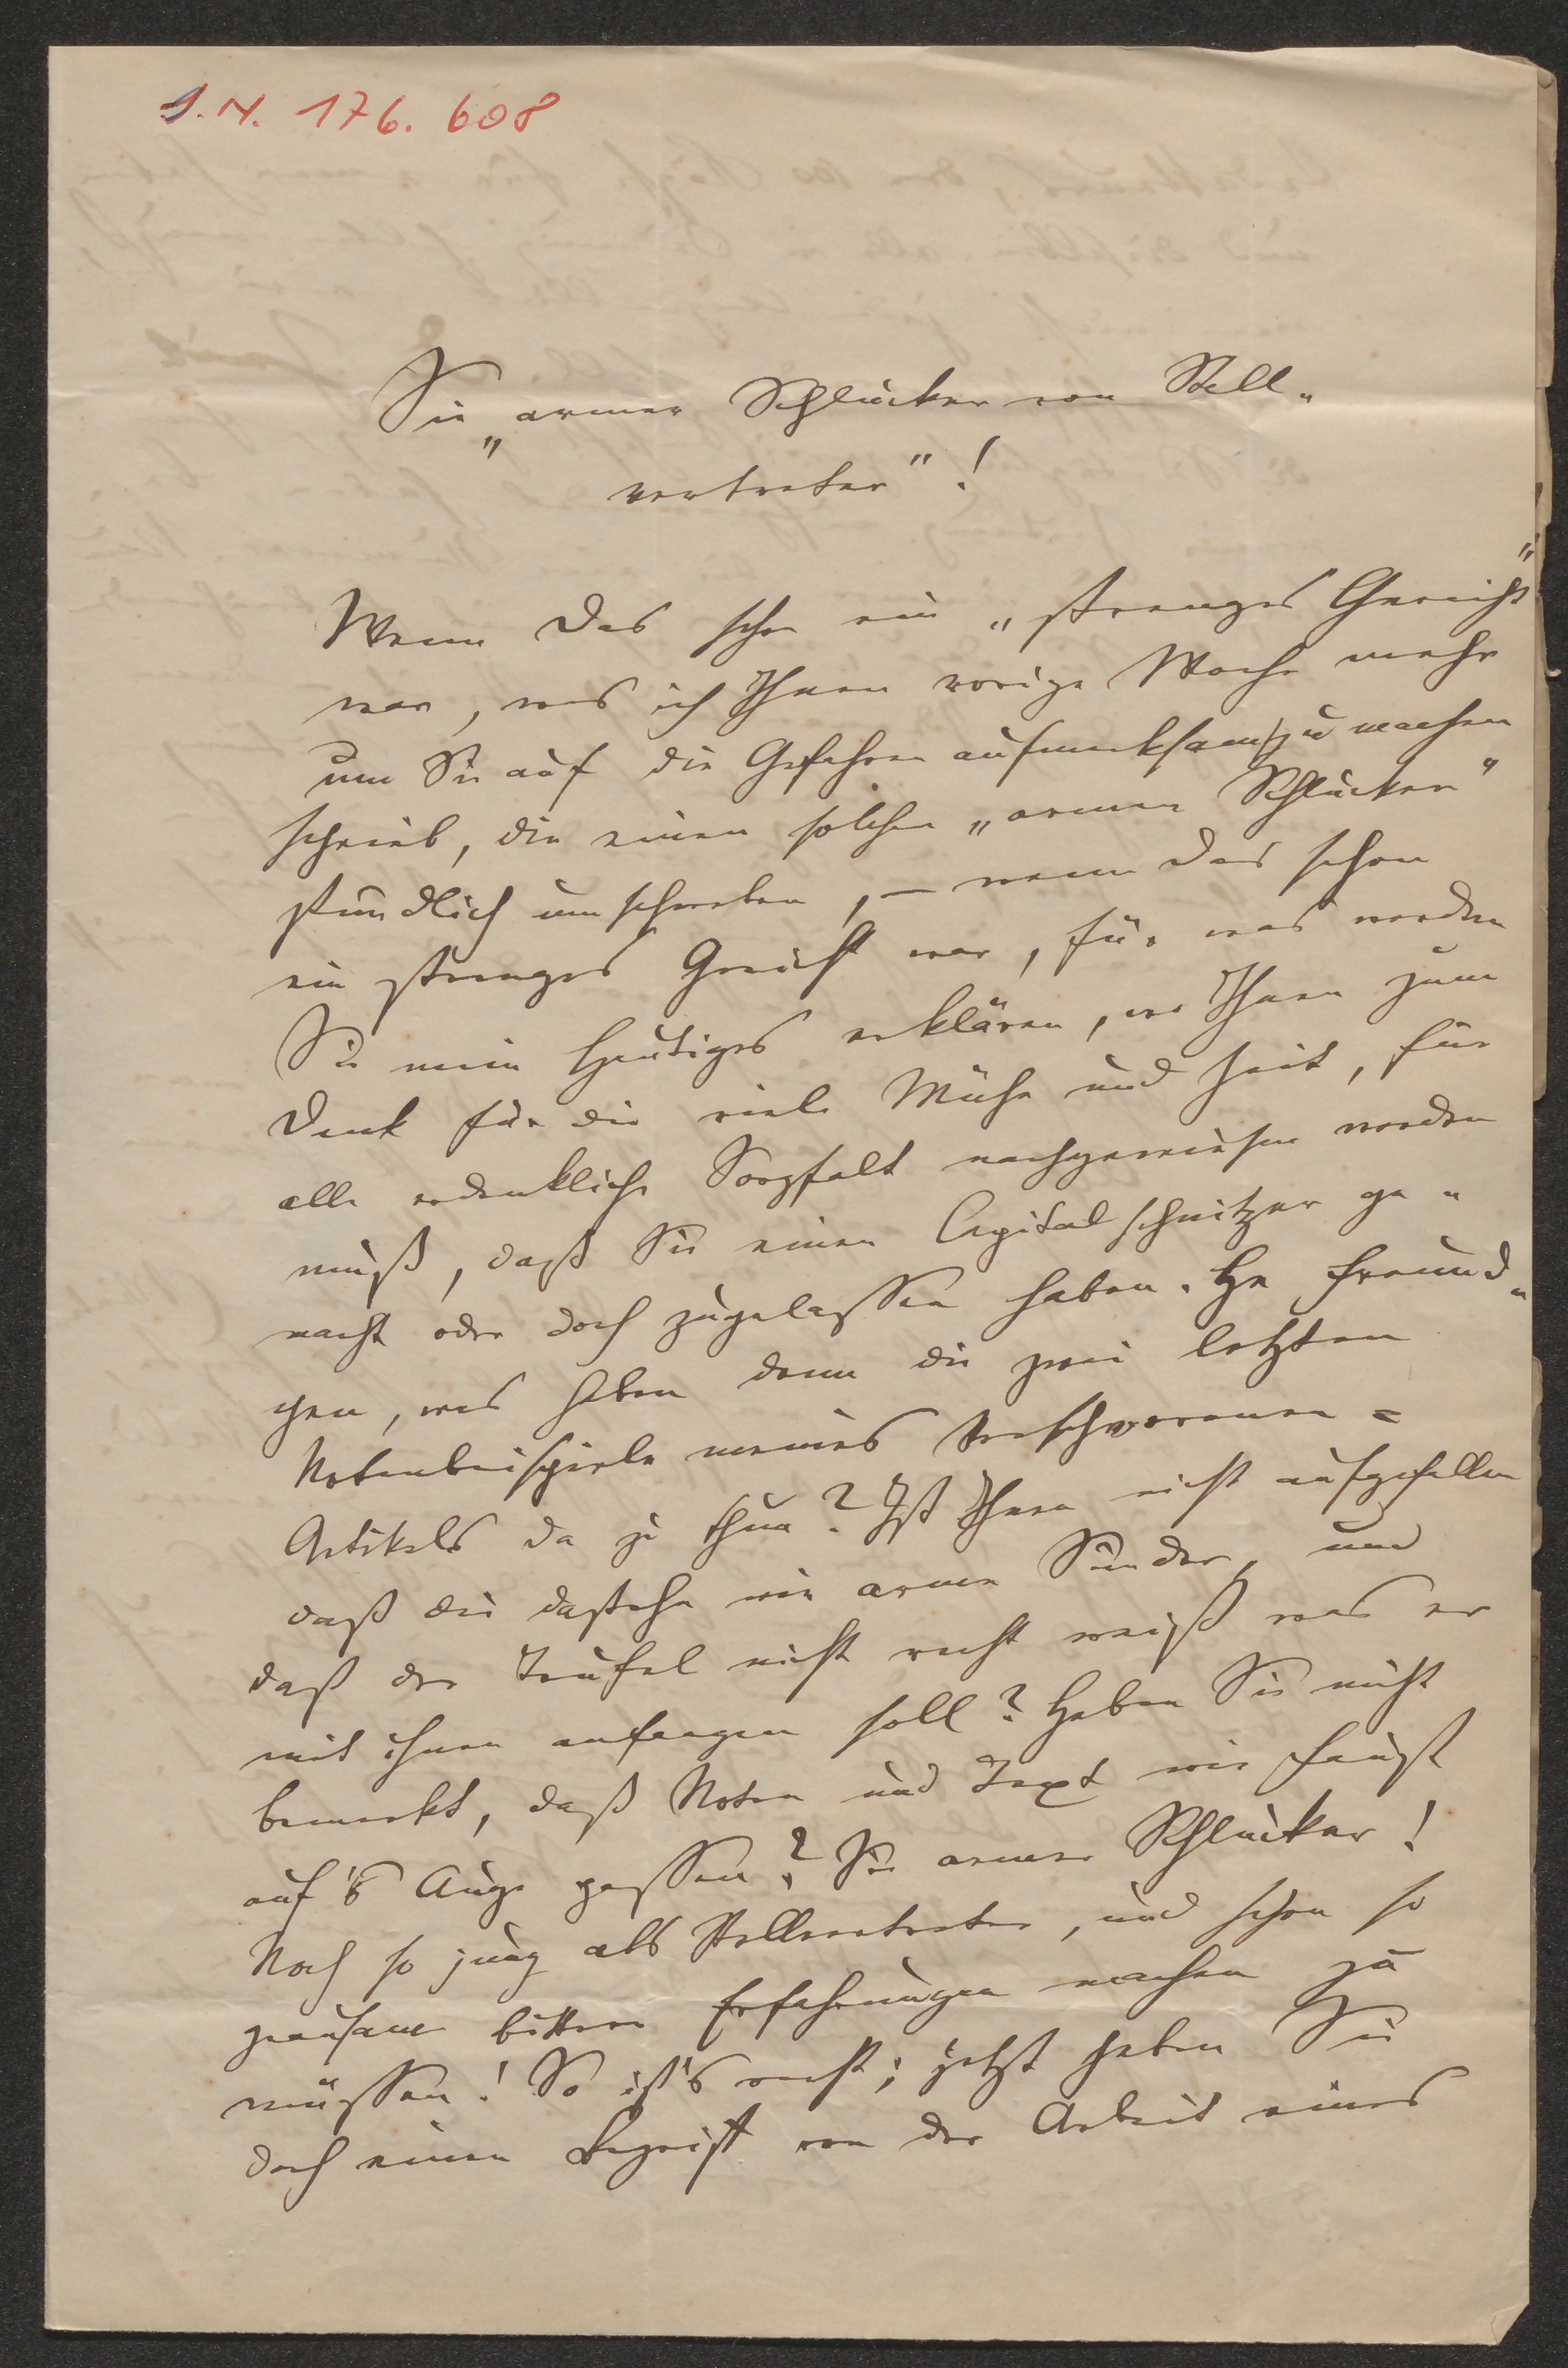 I.N. 176.608
Sie „armer Schlucker von Stell„
vertreter"!
Wenn das schon ein „strenges Gericht"
war, was ich Ihnen vorige Woche mehr
um Sie auf die Gefahren aufmerksam zu machen
schrieb, die einen solchen „armen Schlucker"
stündlich umschweben, – wenn das schon
ein strenges Gericht war, für was werden
Sie mein Heutiges erklären, wo Ihnen zum
Dank für die viele Mühe und Zeit, für
alle erdenkliche Sorgfalt nachgewiesen werden
muß, daß Sie einen Capitalschnitzer ge„
macht oder doch zugelassen haben. He Freund„
chen, was haben denn die zwei letzten
Notenbeispiele meines Verschworenen=
Artikels da zu thun? Ist Ihnen nicht aufgefallen
daß die dastehn wie arme Sünder, und
daß der Teufel nicht recht weiß was er
mit ihnen anfangen soll? Haben Sie nicht
bemerkt, daß Noten und Text wie Faust
auf's Auge passen? Sie armer Schlucker!
Noch so jung als Stellvertreter, und schon so
grausam bittere Erfahrungen machen zu
müssen! So ist's recht; jetzt haben Sie
doch einen Begriff von der Arbeit eines